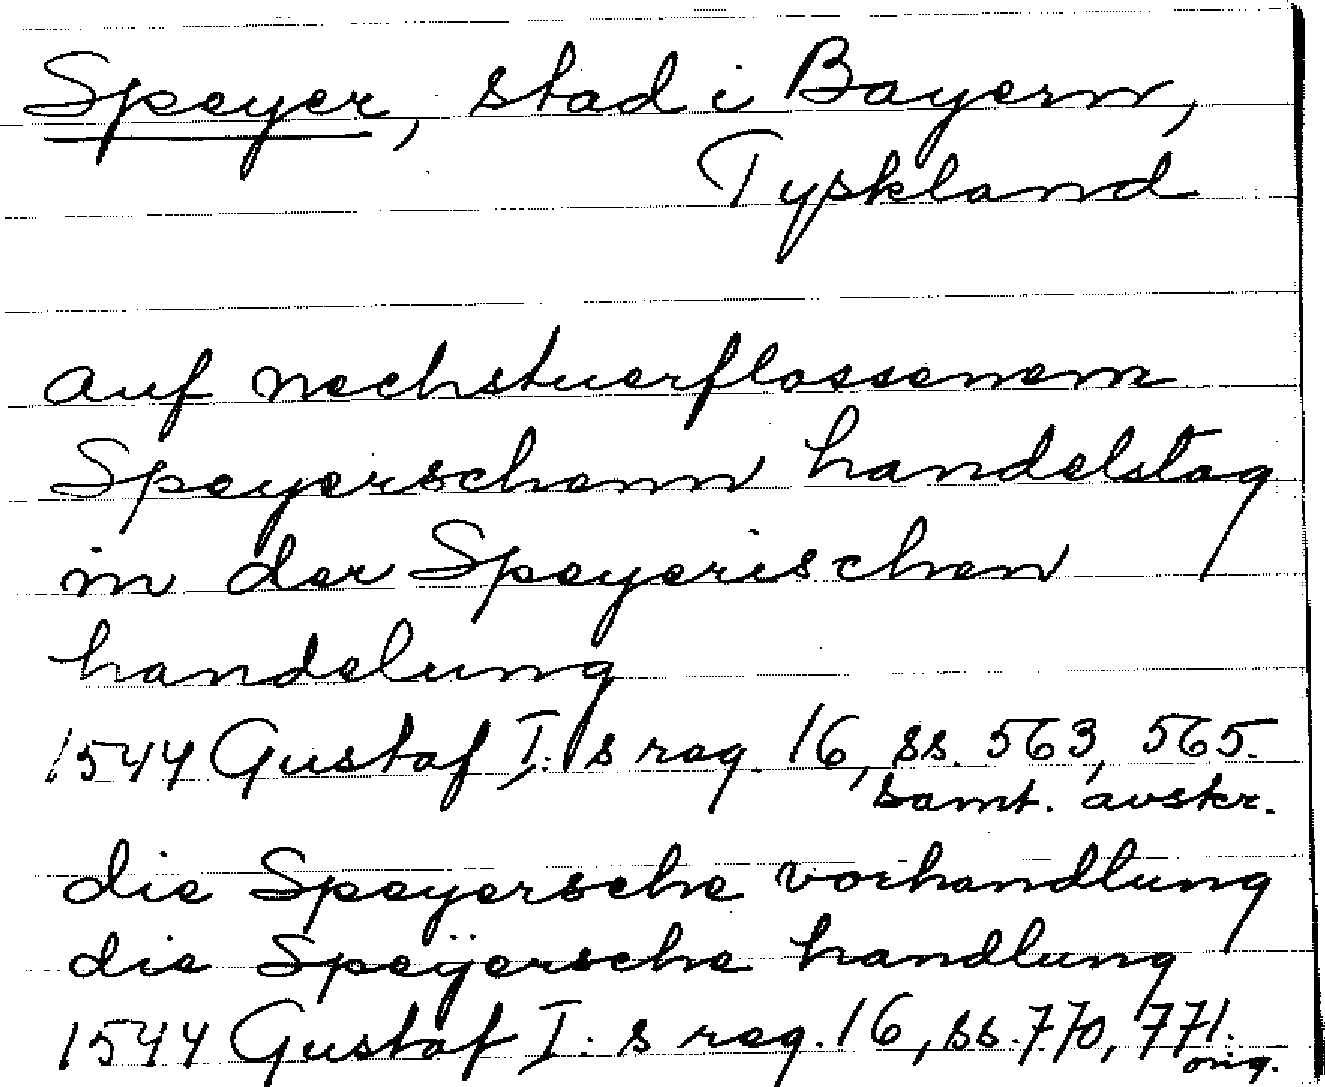 Speyer, stad i Bayern,
Tyskland
auf nechstuerflossenem
Speyerschenn handelstag
in der Speyerischen
handelung
1544 Gustaf I:s reg. 16, ss. 563, 565.
samt. avskr.
die Speyersche vorhandlung
die Speÿersche handlung
1544 Gustaf I:s reg. 16, ss. 770, 771.
orig.